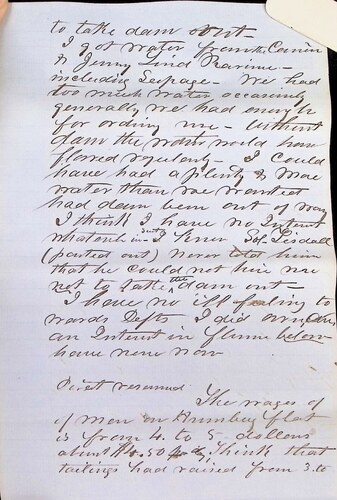 to take dam out-
I got water from the Cañon
& Jenny Lind Ravine-
including Seepage- We had
too much water occasionly
generally we had enough
for ordiny use- Without
dam the water would have
flowed regularly- I could
have had a plenty & more
water than we wanted
had dam been out of way
I think I have no Interest
whatever in suit I knew Sol.
(parted out) Never told him
that he could not hire me
not to take the dam out-
I have no ill feeling to
wards Defts I did own
an Interest in flume below
have none now
Direct resumed
The wages of
of men on Humbug flat
is from 4. to 5. dollars
about $4.50 think that
tailings had raised from 3. to